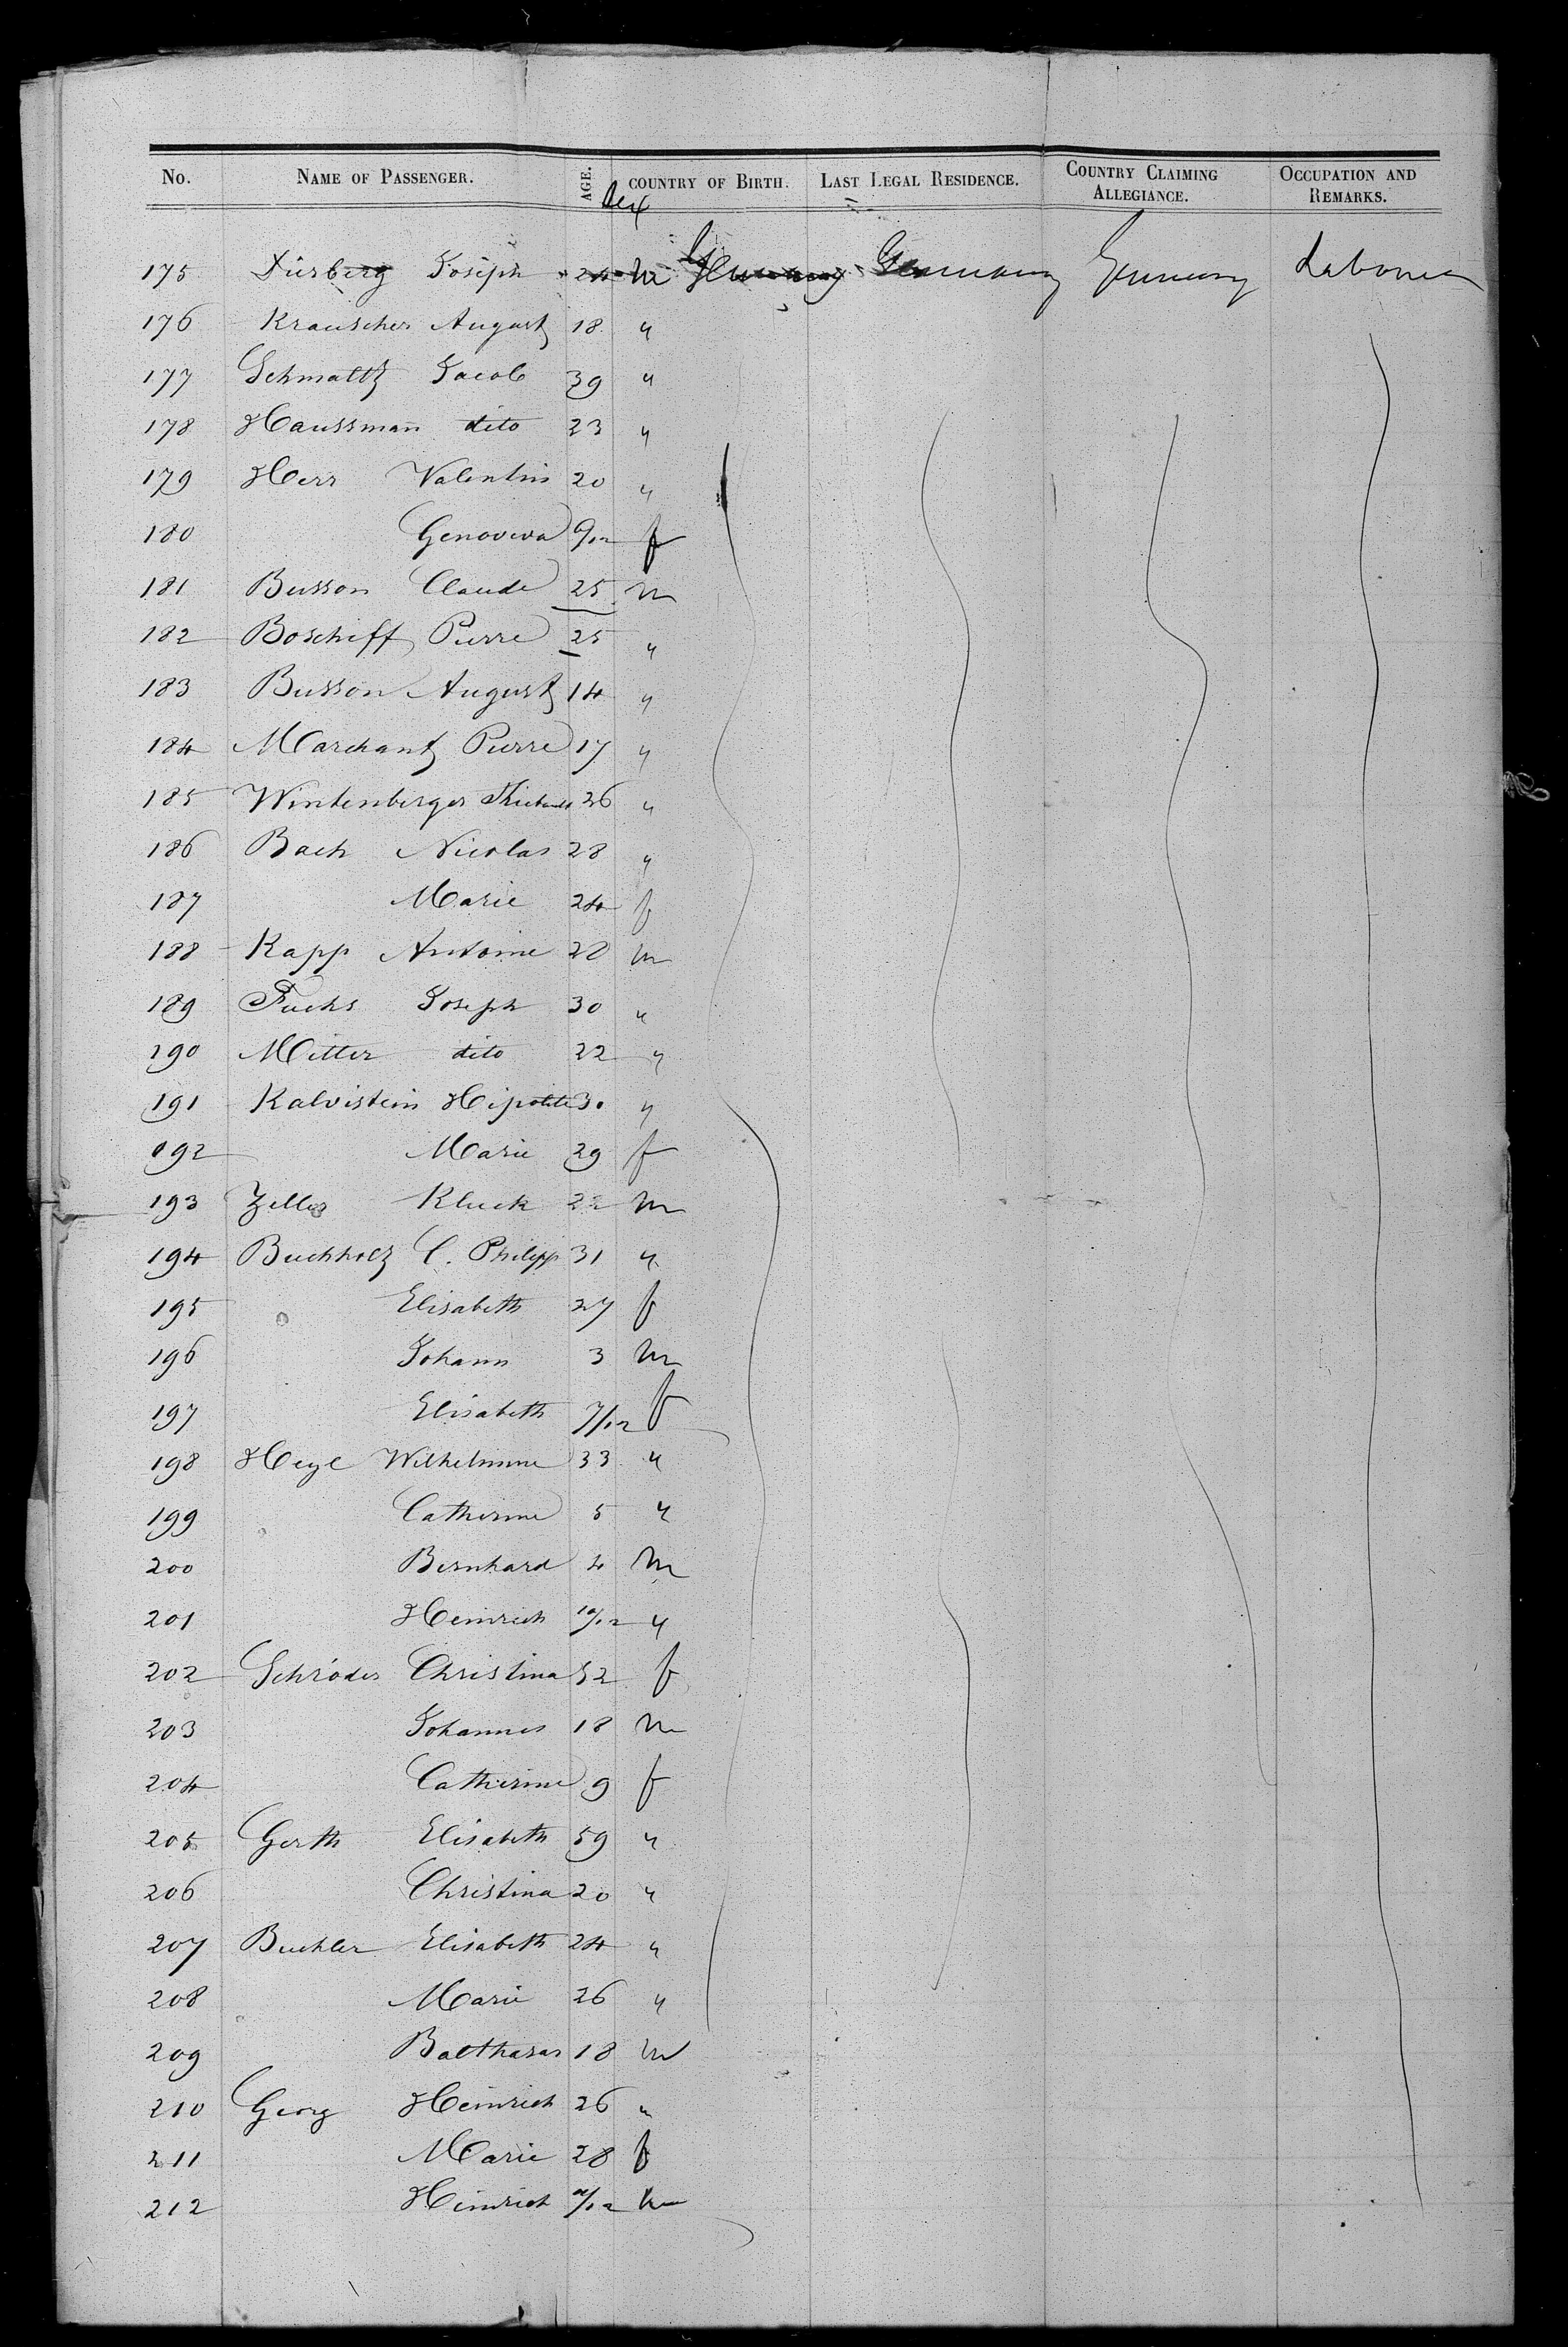 No. NAME OF PASSENGER. AGE. Sex COUNTRY OF BIRTH. LAST LEGAL RESIDENCE. COUNTRY CLAIMING ALLEGIANCE. OCCUPATION AND REMARKS.
175 Dürberg Joseph 24 m Germany Germany Germany Laborer
176 Krauscher August 18 "
177 Schmaltz Jacob 39 "
178 Haussman dito 23 "
179 Herr Valentin 20 "
180 Genoveva 9/12 f
181 Busson Claude 25 m
182 Boschiff Pierre 25 "
183 Busson August 14 "
184 Marchant Pierre 17 "
185 Wintenberger 26 "
186 Bach Nicolas 28 "
187 Marie 24 f
188 Kapp Antoine 28 m
189 Fuchs Joseph 30 "
190 Mitter dito 22 "
191 Kalvistein Hipolite 30 "
192 Marie 29 f
193 Zeller Kluck 22 m
194 Buchholz C. Philipp 31 "
195 Elisabeth 27 f
196 Johann 3 m
197 Elisabeth 7/12 f
198 Heyl Wilhelmine 33 "
199 Catherine 5 "
200 Bernhard 4 m
201 Heinrich 10/12 "
202 Schröder Christina 52 f
203 Johannes 18 m
204 Catherine 9 f
205 Gerth Elisabeth 59 "
206 Christina 20 "
207 Buchler Elisabeth 24 "
208 Marie 26 "
209 Balthasar 18 m
210 Georg Heinrich 26 "
211 Marie 28 f
212 Heinrich m